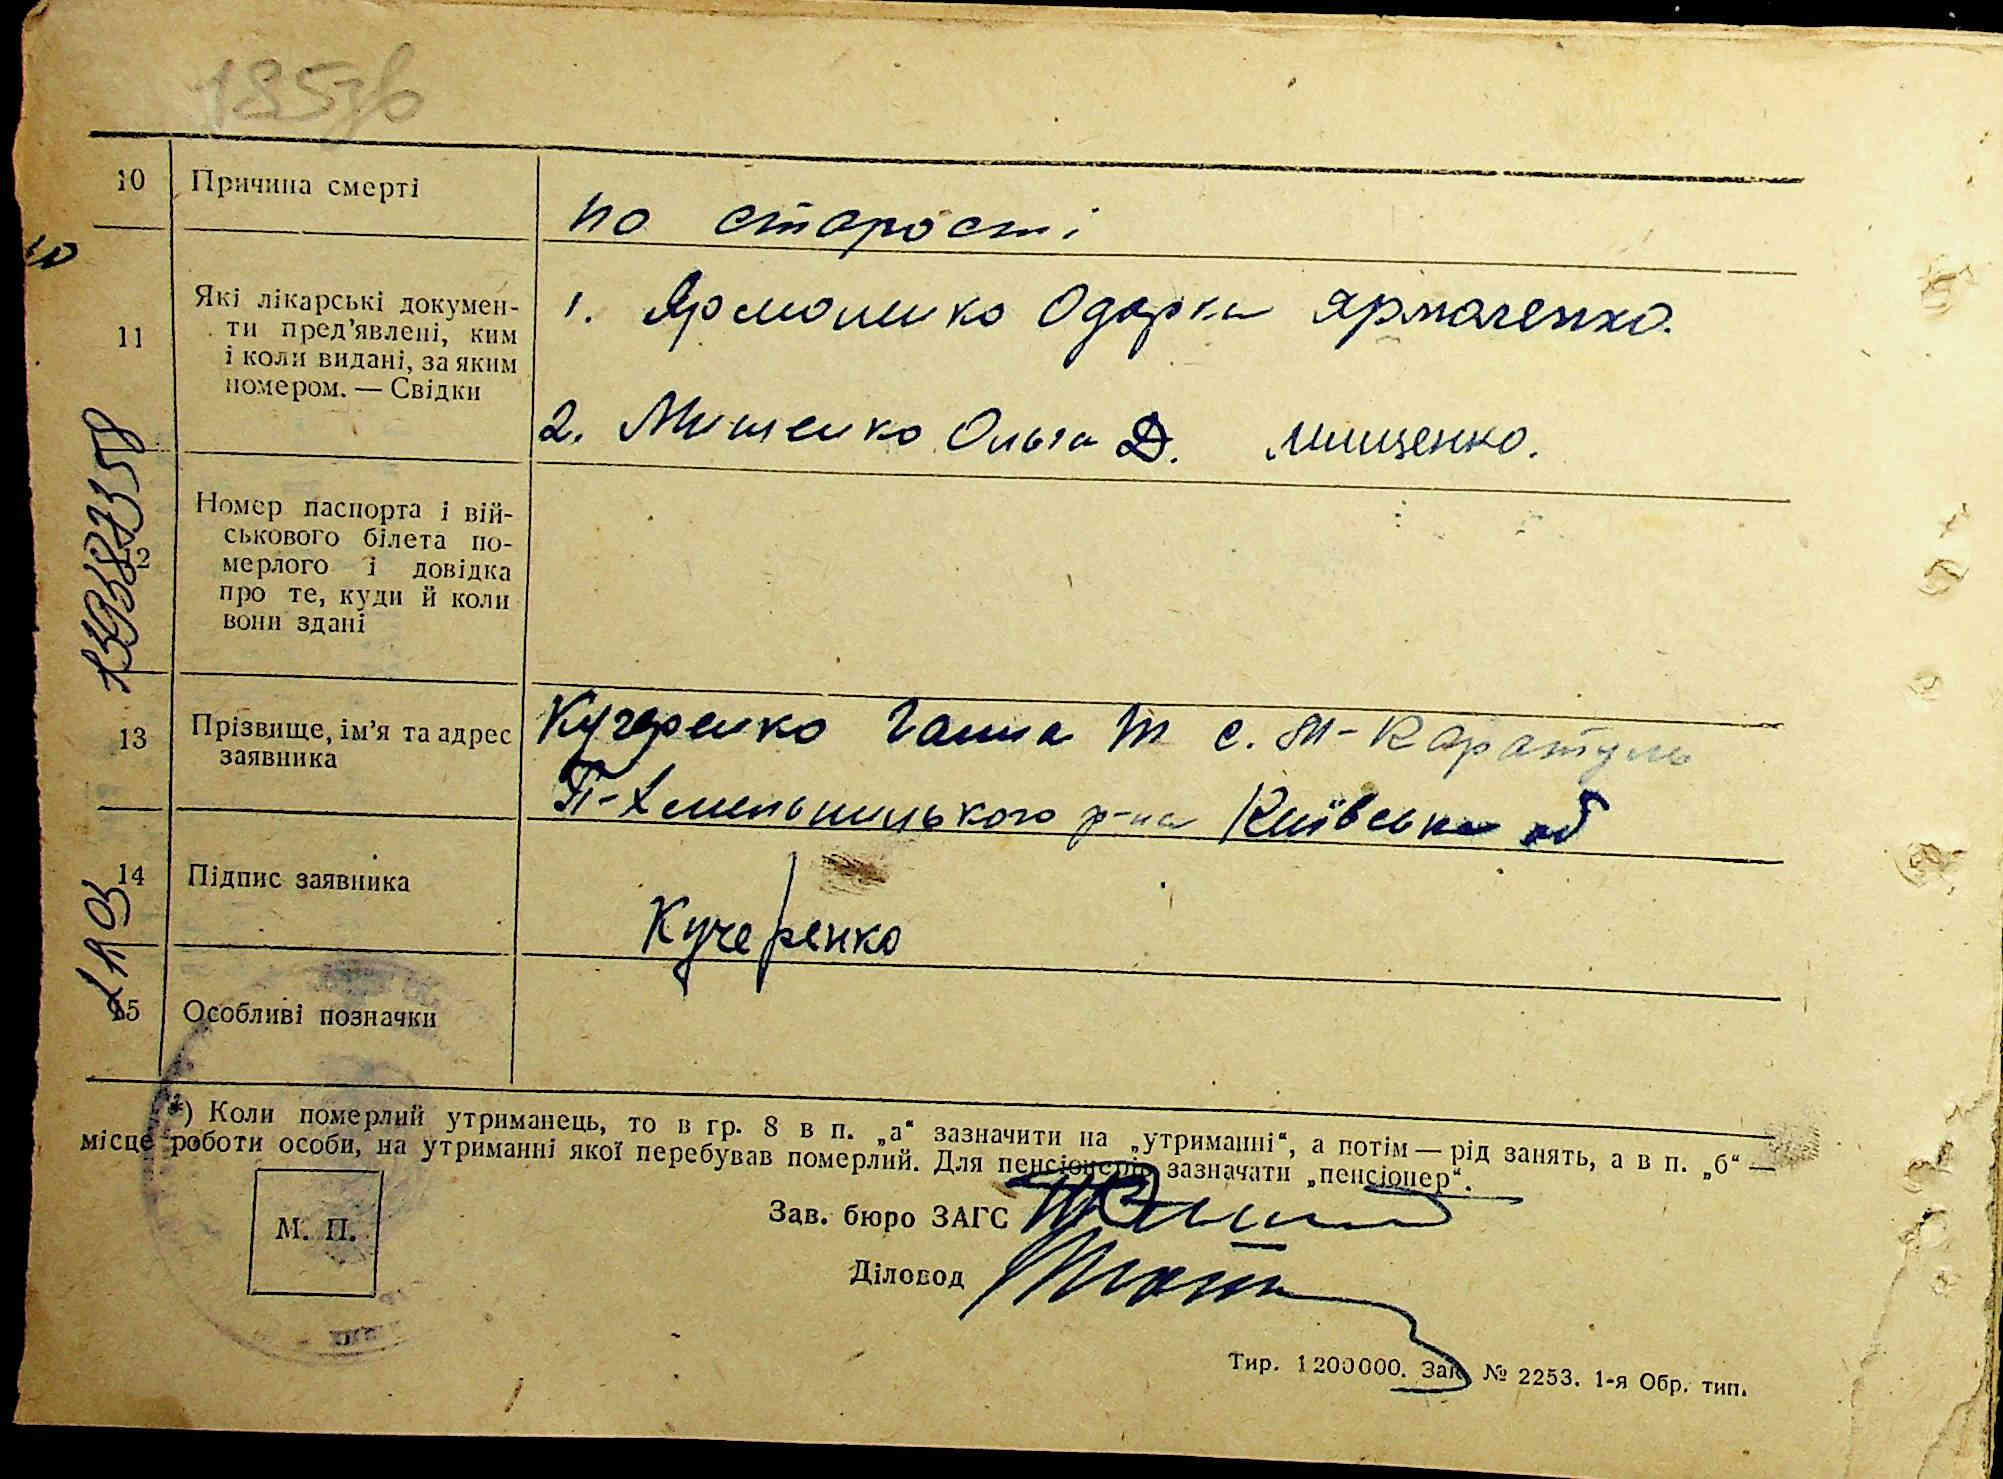 185зв
10 Причина смерті
по старості
11 Які лікарські докумен-
ти пред’явлені, ким
і коли видані, за яким
номером. — Свідки
1. Ярмоленко Одарка Ярмоленко.
2. Мищенко Ольга Д. Мищенко.
12 Номер паспорта і вій-
ськового білета по-
мерлого і довідка
про те, куди й коли
вони здані
13 Прізвище, ім’я та адрес
заявника
Кучеренко Ганна М с. М-Каратуль
П-Хмельницького р-на Київська об
14 Підпис заявника
Кучеренко
15 Особливі позначки
*) Коли померлий утриманець, то в гр. 8 в п. „а“ зазначити на „утриманні“, а потім — рід занять, а в п. „б“ —
місце роботи особи, на утриманні якої перебував померлий. Для пенсіонерів зазначати „пенсіонер“.
М. П.
Зав. бюро ЗАГС
Діловод
Тир. 1200000. Зак. № 2253. 1-я Обр. тип.